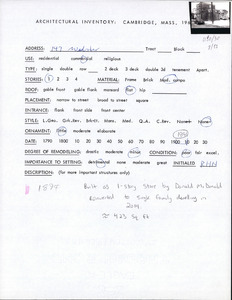 ARCHITECTURAL INVENTORY: CAMBRIDGE, MASS., 196
ADDRESS: 147 Tract Block
USE: residential commercial religious
TYPE: single double row 2 deck 3 deck double 3d tenement Apart.
STORIES: 1 2 3 4 MATERIAL: Frame Brick Mod.
ROOF: gable front gable flank mansard flat hip
PLACEMENT: narrow to street broad to street square
ENTRANCE: flank front side front center
STYLE: L.Geo. Grk.Rev. Brkt. Mans. Med. Q.A. C.Rev. None
ORNAMENT: little moderate elaborate
DATE: 1790 1800 10 20 30 40 50 60 70 80 90 1900 10 20 30
DEGREE OF REMODELING: drastic moderate minor CONDITION: poor fair excel.
IMPORTANCE TO SETTING: detrimental none moderate great INITIALED
DESCRIPTION: (for more important structures only)
1895 Built as 1-story store by Donald McDonald
converted to single family dwelling in
2014